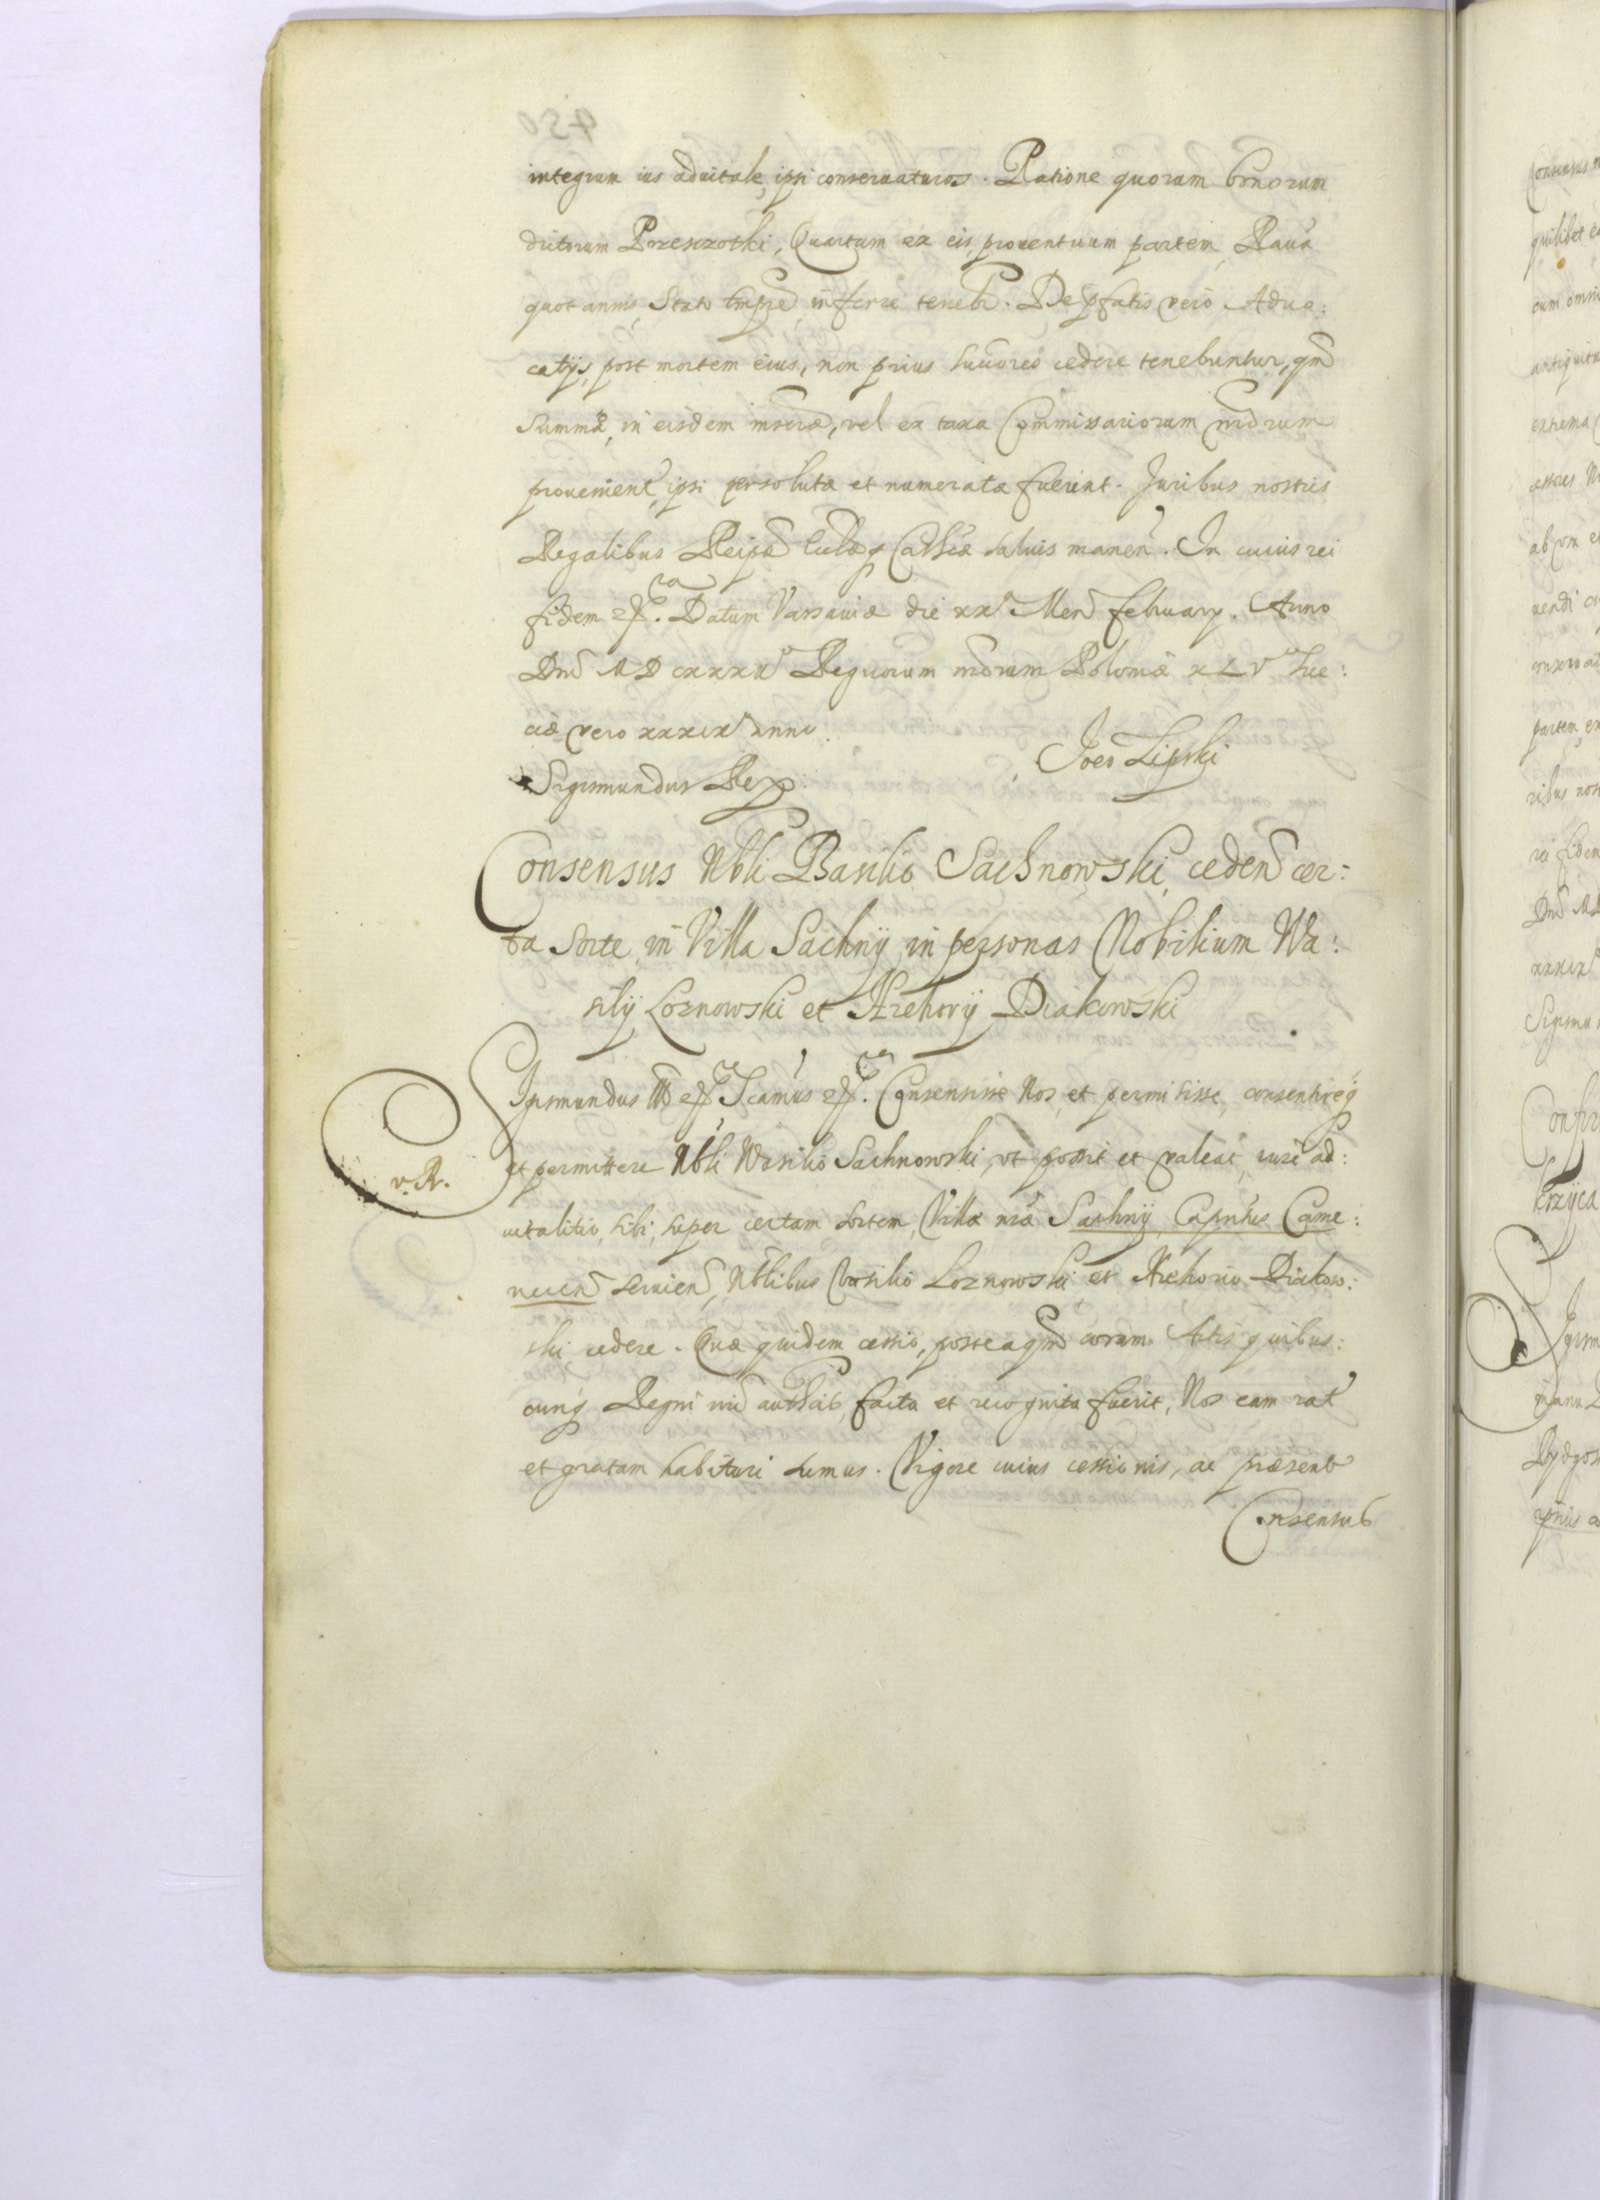 integrum ius aduitale, ipsi conseruaturos. Ratione quorum bonorum
dictorum Quartam ex eis prouentuum partem, Rauã
quot annis, Stato tmpre inferre tenebr. De pfatis vero Aduo:
catijs, post mortem eius, non prius Succores cedere tenebuntur, qm̃
Summæ, in eisdem inscræ, vel ex taxa Commissariorum nrõrum
prouenient, ipsi persolutæ et numeratæ fuerint. Juribus nostris
Regalibus Reipæ Ecclæq Cathcæ saluis manen̄. In cuius rei
fidem etc. Datum Varsauiæ die xx Men̄ february. Anno
Dnĩ MDCXXXII Regnorum nrõrum Poloniæ XLV Sue:
ciæ vero xxxix anno
Sigismundus Rex.
Joes Lipski
Consensus Nbli Basilio Sachnowski, ceden̄ cer:
ta Sorte, in Villa Sachnÿ in personas Nobilium Wa:
silÿ Loznowski et Hrehorÿ Diakowski
Sigismundus III etc Scamus etc. Consensisse Nos, et permisisse, consentireq
et permittere Nbli Wasilio Sachnowski, vt possit et valeat, iure ad:
v. R.
uitalitio, sibi, super certam sortem, Villæ nræ Sachnÿ, Capntus Came:
necen̄ seruien̄, Nblibus Vasilio Loznowski et Hrehorio Diakow:
ski, cedere. Quæ quidem cessio, posteaqm̃ coram Actis quibus:
cunq Regni nri authcis, facta et recognita fuerit, Nos eam rat
et gratam habituri sumus. Vigore cuius cessionis, ac præsent
Consensus